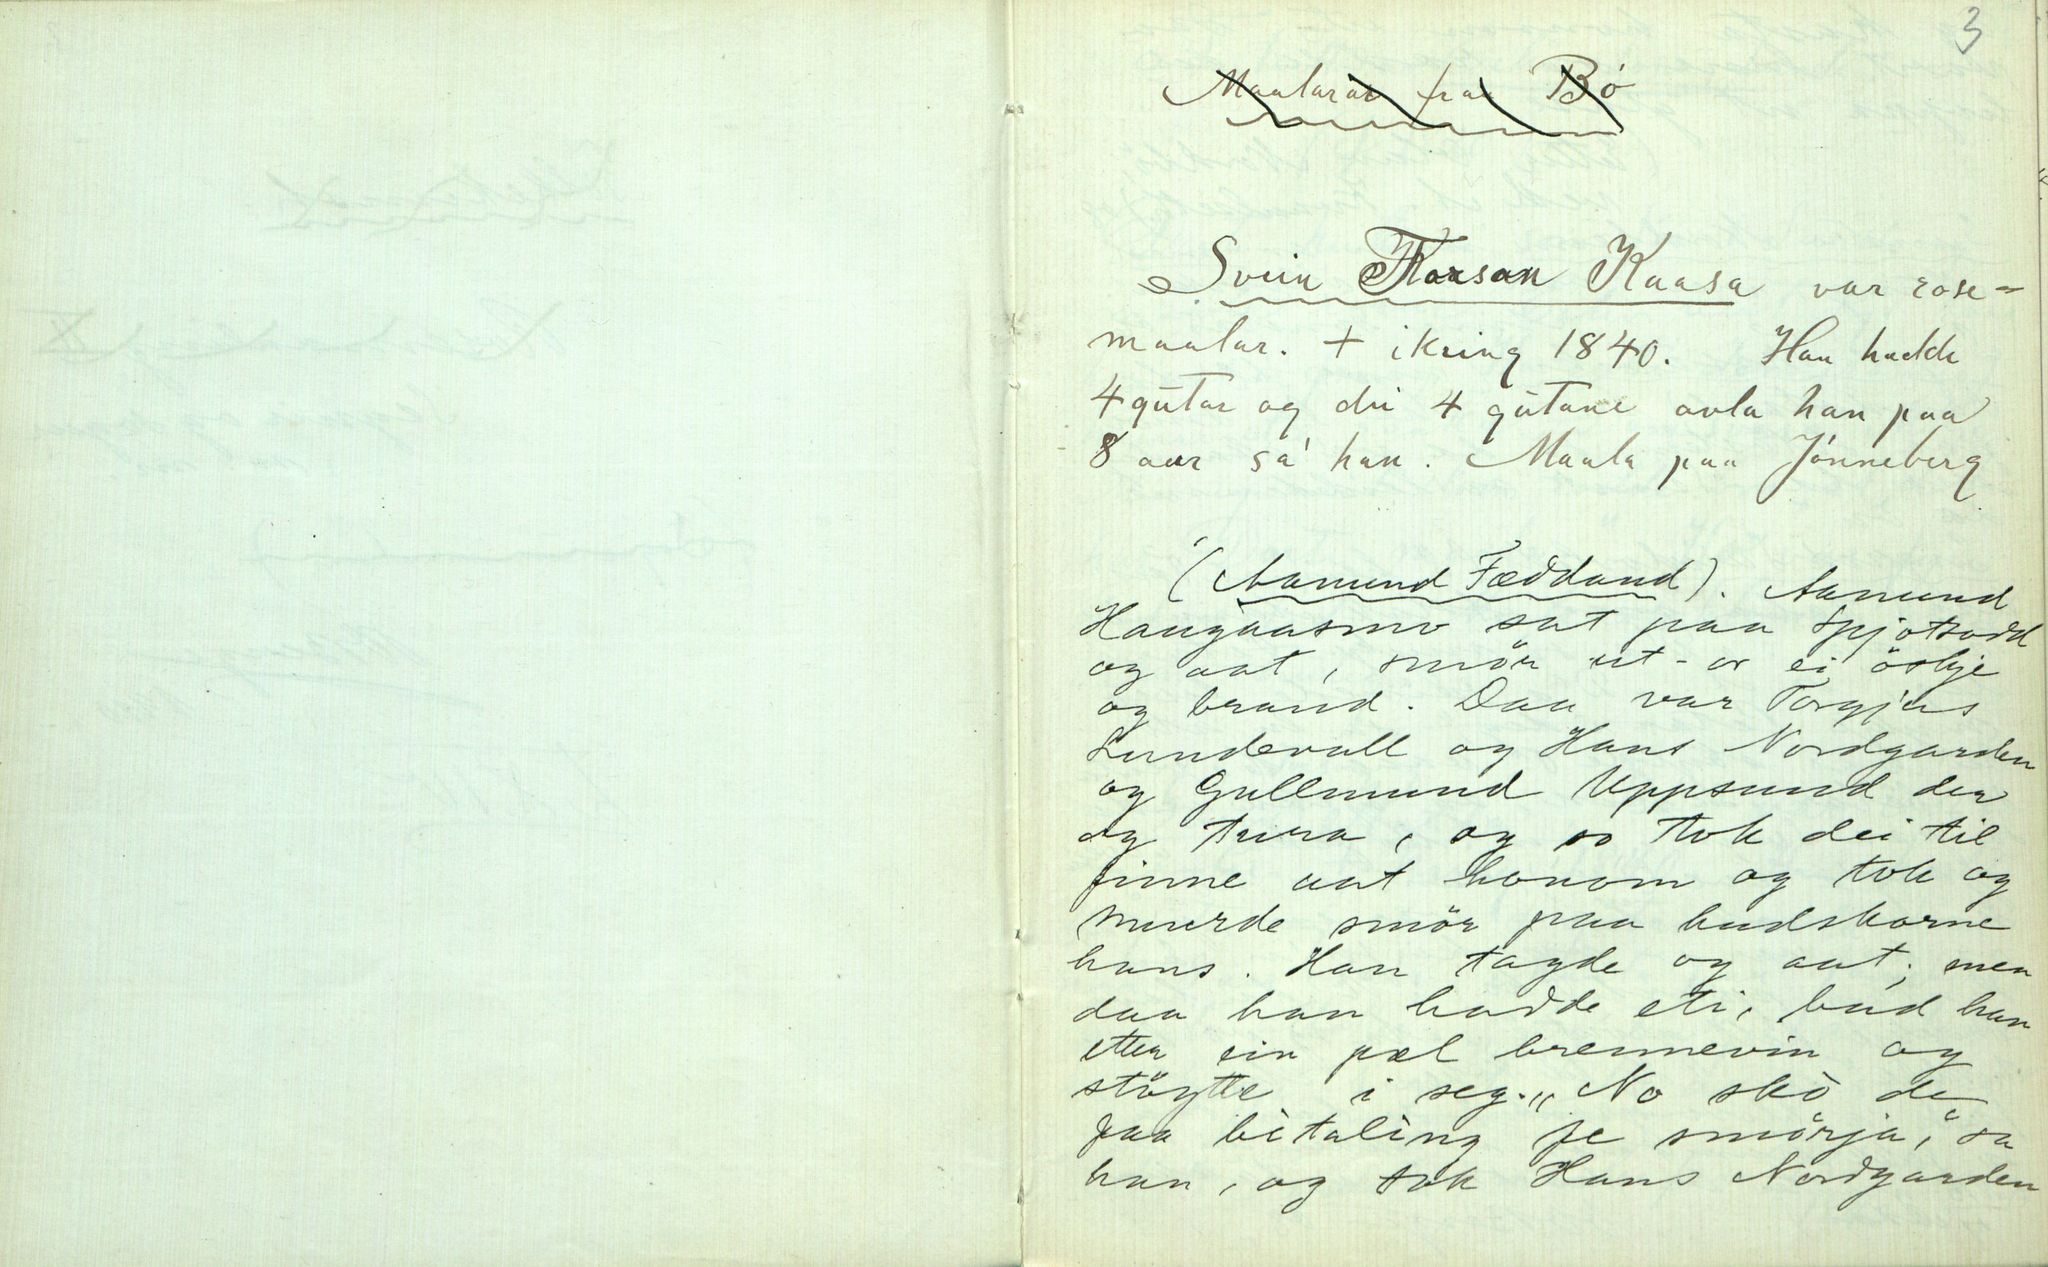 3
Maalarar fraa Bó
Svein Torsson Kaasa var rose=
maalar. + ikring 1840. Han hadde
4 gutar og dei 4 gutane avla han paa
8 aar sá han. Maala paa Jónneberg
(Aamund Fæddand). Aamund
Haugaasmo sat paa Spjotsodd
og aat, smör ut-or ei öskje
og braud. Daa var Torgjus
Lundevall og Hans Nordgarden
og Gullmund Uppsund der
og tvira, og so tok dei til
finne aat honom og tok og
smurde smör paa hudskorne
hans. Han tagde og aat, men
daa han hadde eti, bad han
etter ein pæl brennevin og
stöytte i seg. „No skò de
faa bitaling fe smörja," sa
han, og tok Hans Nordgarden